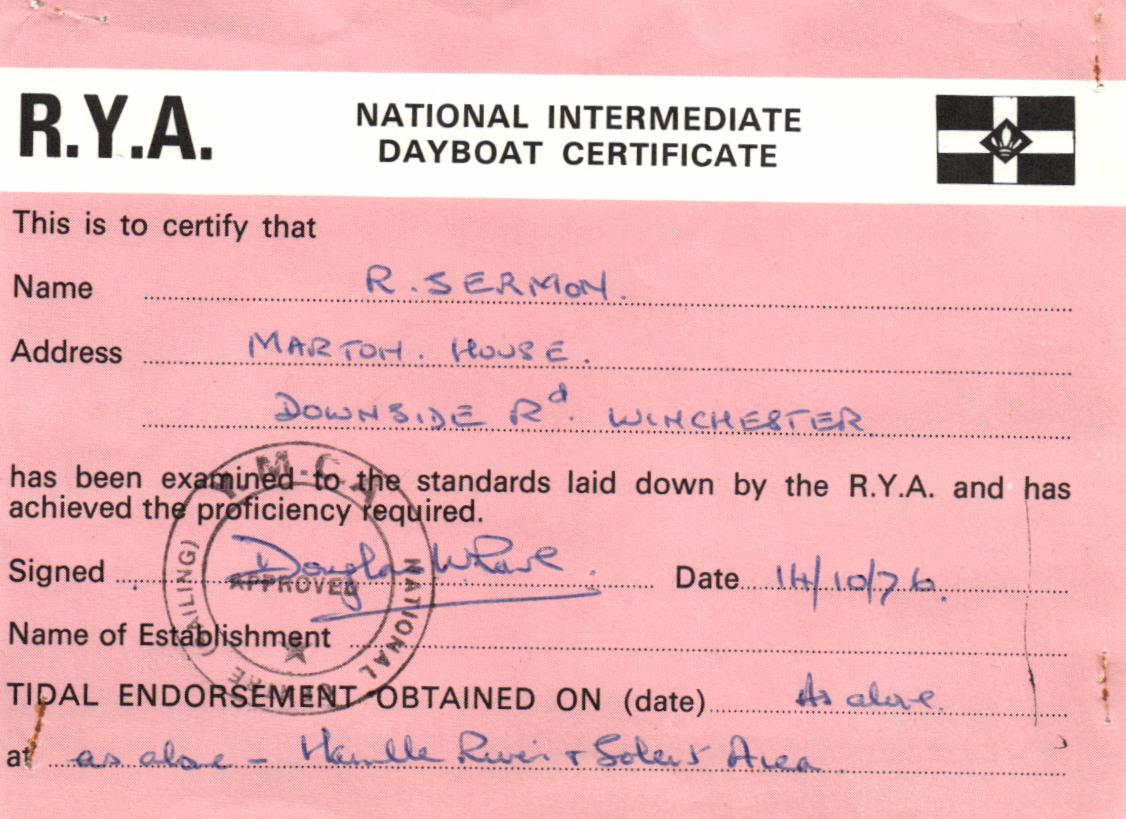 R.Y.A.
NATIONAL INTERMEDIATE
DAYBOAT CERTIFICATE
This is to certify that
Name R. SERMON.
Address MARTON. HOUSE.
DOWNSIDE Rd. WINCHESTER
has been examined to the standards laid down by the R.Y.A. and has
achieved the proficiency required.
Signed Douglas Date 14/10/76.
Y.M.C.A NATIONAL CENTRE (SAILING)
APPROVED
Name of Establishment
TIDAL ENDORSEMENT OBTAINED ON (date) As above.
at as above – Hamble River + Solent Area